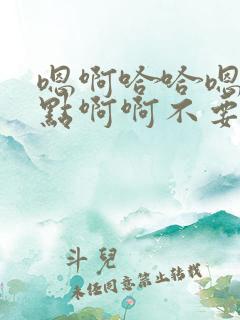 嗯啊哈哈嗯
點啊啊不要
斗兒
未經同意禁止轉載